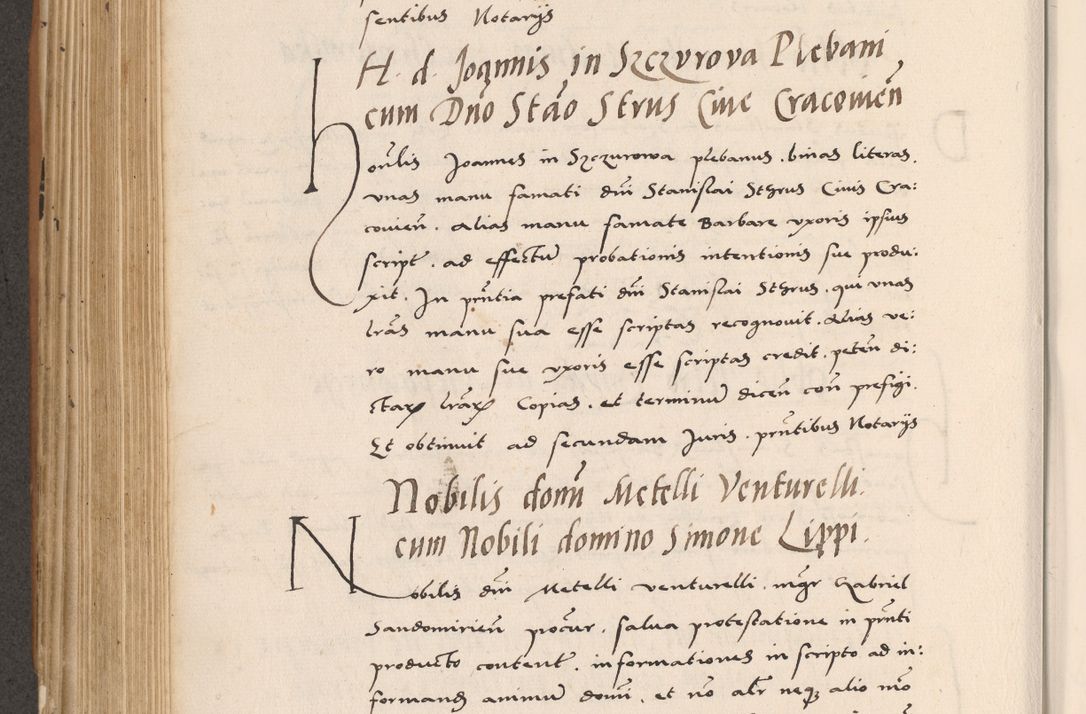 sentibus Notarijs
H. d. Joannis in Szczvrova Plebani
cum Dño Stão Strus Ciue Cracouieñ
Honrlis Joannes in Szczurowa plebanus, binas literas,
vnas manu famati dñi Stanislai Sthrus Ciuis Cra:
couieñ. alias manu famate Barbare vxoris ipsius
script. ad effectũ probationis intentionis sue produ:
xit. In pñtia prefati dñi Stanislai Sthrus. qui vnas
lrãs manu sua esse scriptas recognouit. Alias ve:
ro manu sue vxoris esse scriptas credit. peteñ di:
ctarꝝ lrãrꝝ Copias. et terminũ diceñ coñ prefigi.
Et obtinuit ad secundam Juris. pñtibus Notarijs
Nobilis domĩ Metelli Venturelli.
cum Nobili domino Simone Lippi.
Nobilis dñi Metelli venturelli. mgr Gabriel
Sandomirieñ procur. salua protestatione in pñti
producto content. informationes in scripto ad in:
formand animũ domĩ. et nõ alr neqz alio mõ